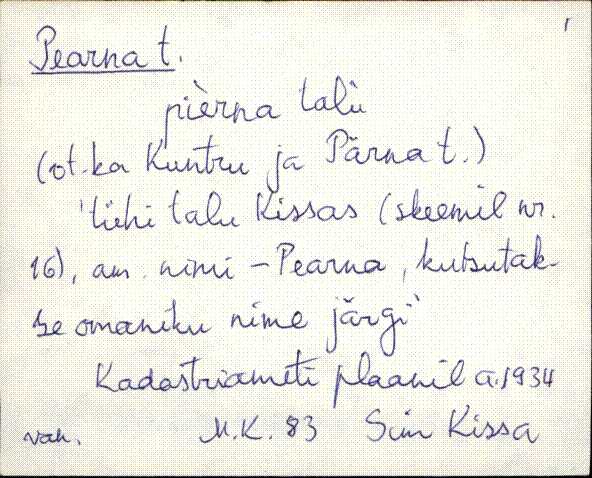 Pearna t.
pièrna talù
(vt. ka Kuntru ja Pärna t.)
'tühi talu Kissas (skeemil nr.
16), am. nimi – Pearna, kutsutak-
se omaniku nime järgi'
Kadastriameti plaanil a. 1934
van. M.K. 83 Siim Kissa